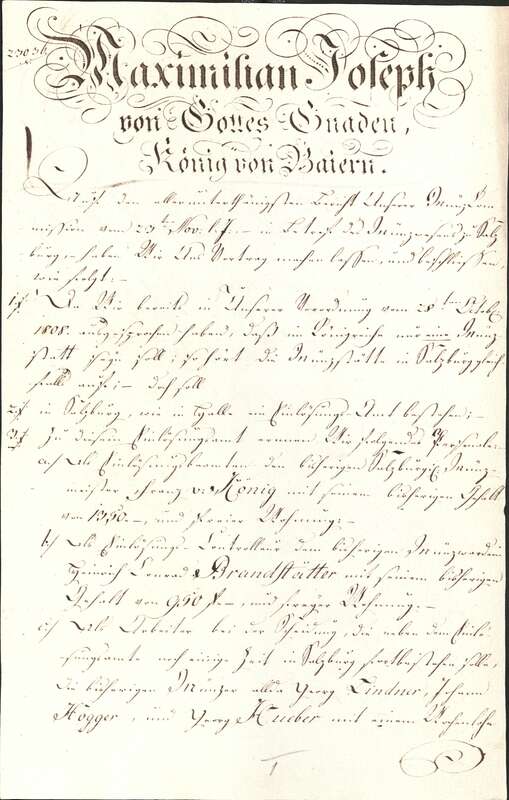 23036.
Maximilian Joseph
von Gottes Gnaden,
König von Baiern.
Auf den allerunterthänigsten Bericht Unserer Münz Com¬
mission vom 23ten Nov. l. J. – in Betref des Münzwesens zu Salz
burg – haben Wir Uns Vortrag machen lassen, und beschliessen,
wie folgt: –
1.) Da Wir bereits in Unserer Verordnung vom 28ten Octob.
1808. ausgesprochen haben, daß im Königreiche nur eine Münz
statt seyn soll; so hört die Münzstätte in Salzburg
auf; – doch soll
2.) in Salzburg, wie in Halle ein Einlösungs-Amt bestehen; –
3.) Zu diesem Einlösungsamt ernennen Wir folgendes Personale:
a.) Als Einlösungsbeamten den bisherigen Salzburg. Münz-
meister Franz v. König mit seinem bisherigen Gehalt
von 1350. –, und freier Wohnung: –
b.) Als Einlösungs-Controlleur dem bisherigen Münzwardein
Heinrich Conrad Brandstätter mit seinem bisherigen
Gehalt von 950 f. –, und freyer Wohnung. –
c.) Als Arbeiter bei der Scheidung, die neben dem Einlö-
sungsamte noch einige Zeit in Salzburg fortbestehen solle,
die bisherigen Münzer allda Georg Lindner, Johann
Högger, und Georg Hueber mit einem Wochenlohn